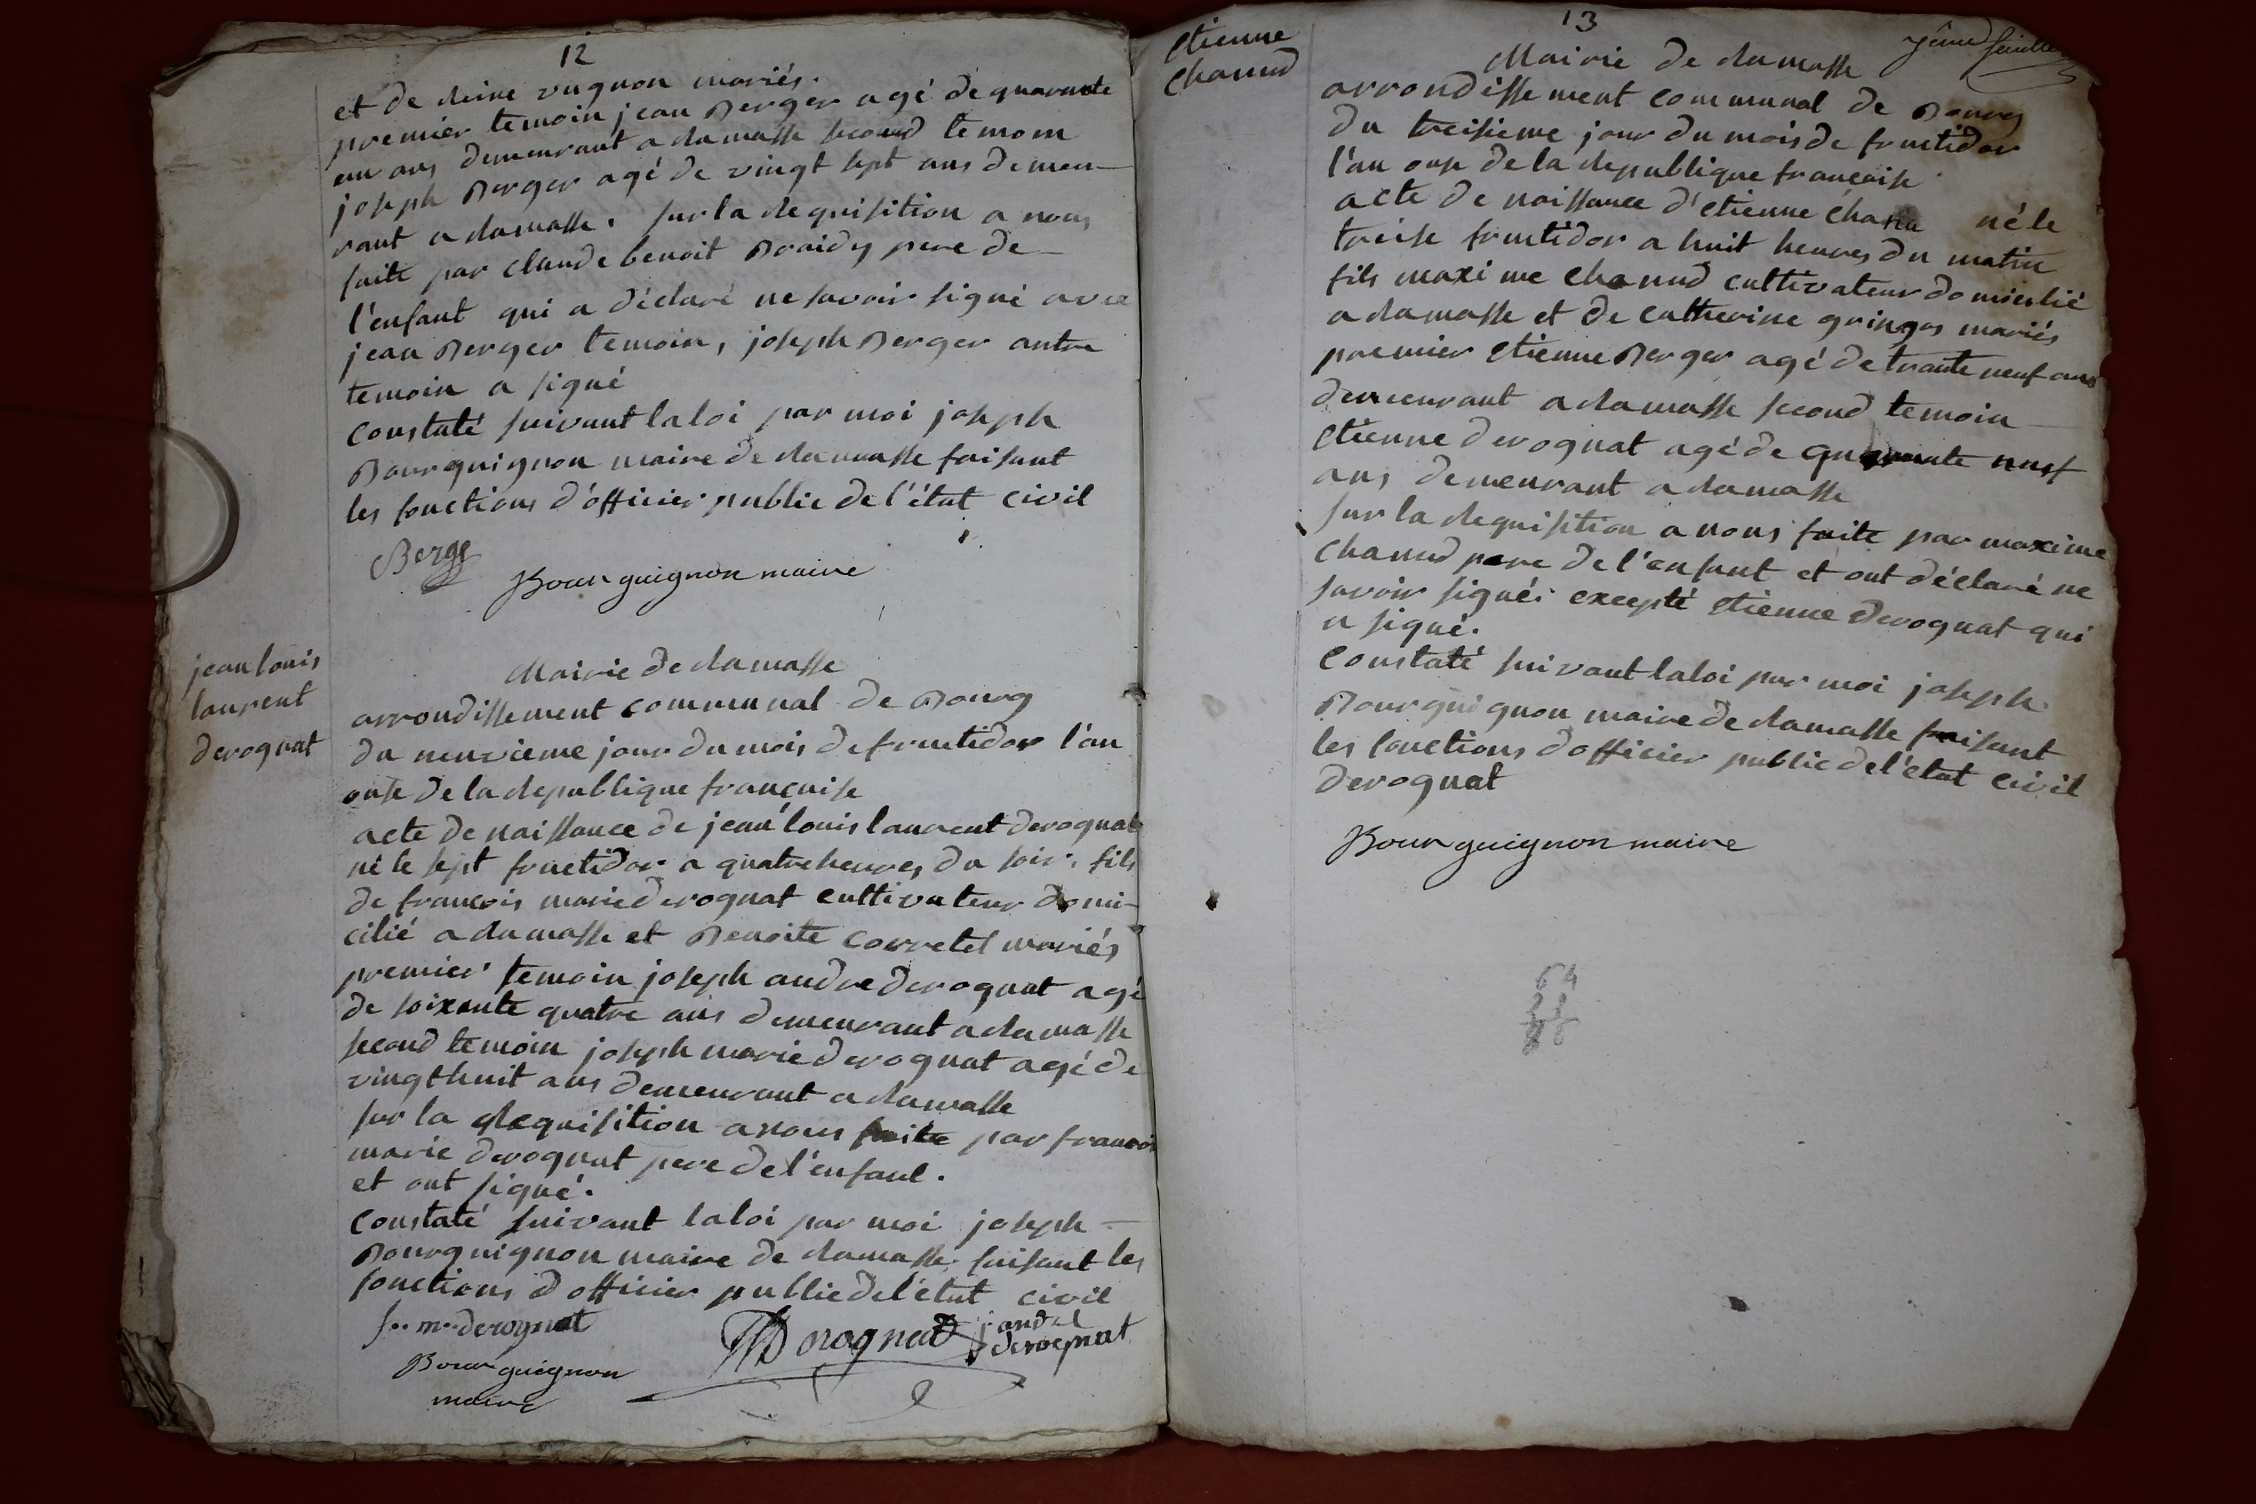 12
et de Reine vugnon mariés.
premier temoin jean Berger agé de quarante
un ans demeurant a Ramasse second temoin
joseph Berger agé de vingt sept ans demeu-
rant a Ramasse. sur la Requisition a nous
faite par claude benoit Braidy pere de
l'enfant qui a déclaré ne savoir signé avec
jean Berger temoin, joseph Berger autre
temoin a signé
Constaté suivant la loi par moi joseph
Bourguignon maire de Ramasse faisant
les fonctions d'officier public de l'état civil
Berge
Bourguignon maire
jean louis
laurent
derognat
Mairie de Ramasse
arrondissement communal de Bourg
du neuvieme jour du mois de fructidor l'an
onse de la Republique françaises
acte de naissance de jean louis laurent derognat
né le sept fructidor a quatre heures du soir, fils
de francois marie derognat cultivateur domi-
cilié a Ramasse et Benoite Corretel mariés
premier temoin joseph andre derognat agé
de soixante quatre ans demeurant a Ramasse
second temoin joseph marie derognat agé de
vingt huit ans demeurant a Ramasse
sur la Requisition a nous faite par francois
marie derognat pere de l'enfant.
et ont signé.
Constaté suivant la loi par moi joseph
Bourguignon maire de Ramasse faisant les
fonctions d officier public de l'état civil
f.. m.. derognat
Derognat
j andré
derognat
Bourguignon
maire
etienne
chanud
13
7eme feuille
Mairie de Ramasse
arrondissement communal de Bourg
du treisieme jour du mois de fructidor
l'an onse de la Republique francaise
acte de naissance d'etienne Chanu né le
treise fructidor a huit heures du matin
fils maxime chanud cultivateur domicilié
a Ramasse et de catherine gringos mariés
premier etienne Berger agé de trante neuf ans
demeurant a Ramasse second temoin
etienne derognat agé de quarante neuf
ans demeurant a Ramasse
sur la Requisition a nous faite par maxime
chanud pere de l'enfant et ont déclaré ne
savoir signé. excepté etienne derognat qui
a signé.
Constaté suivant la loi par moi joseph
Bourguignon maire de Ramasse faisant
les fonctions d officier public de l'état civil
derognat
Bourguignon maire
64